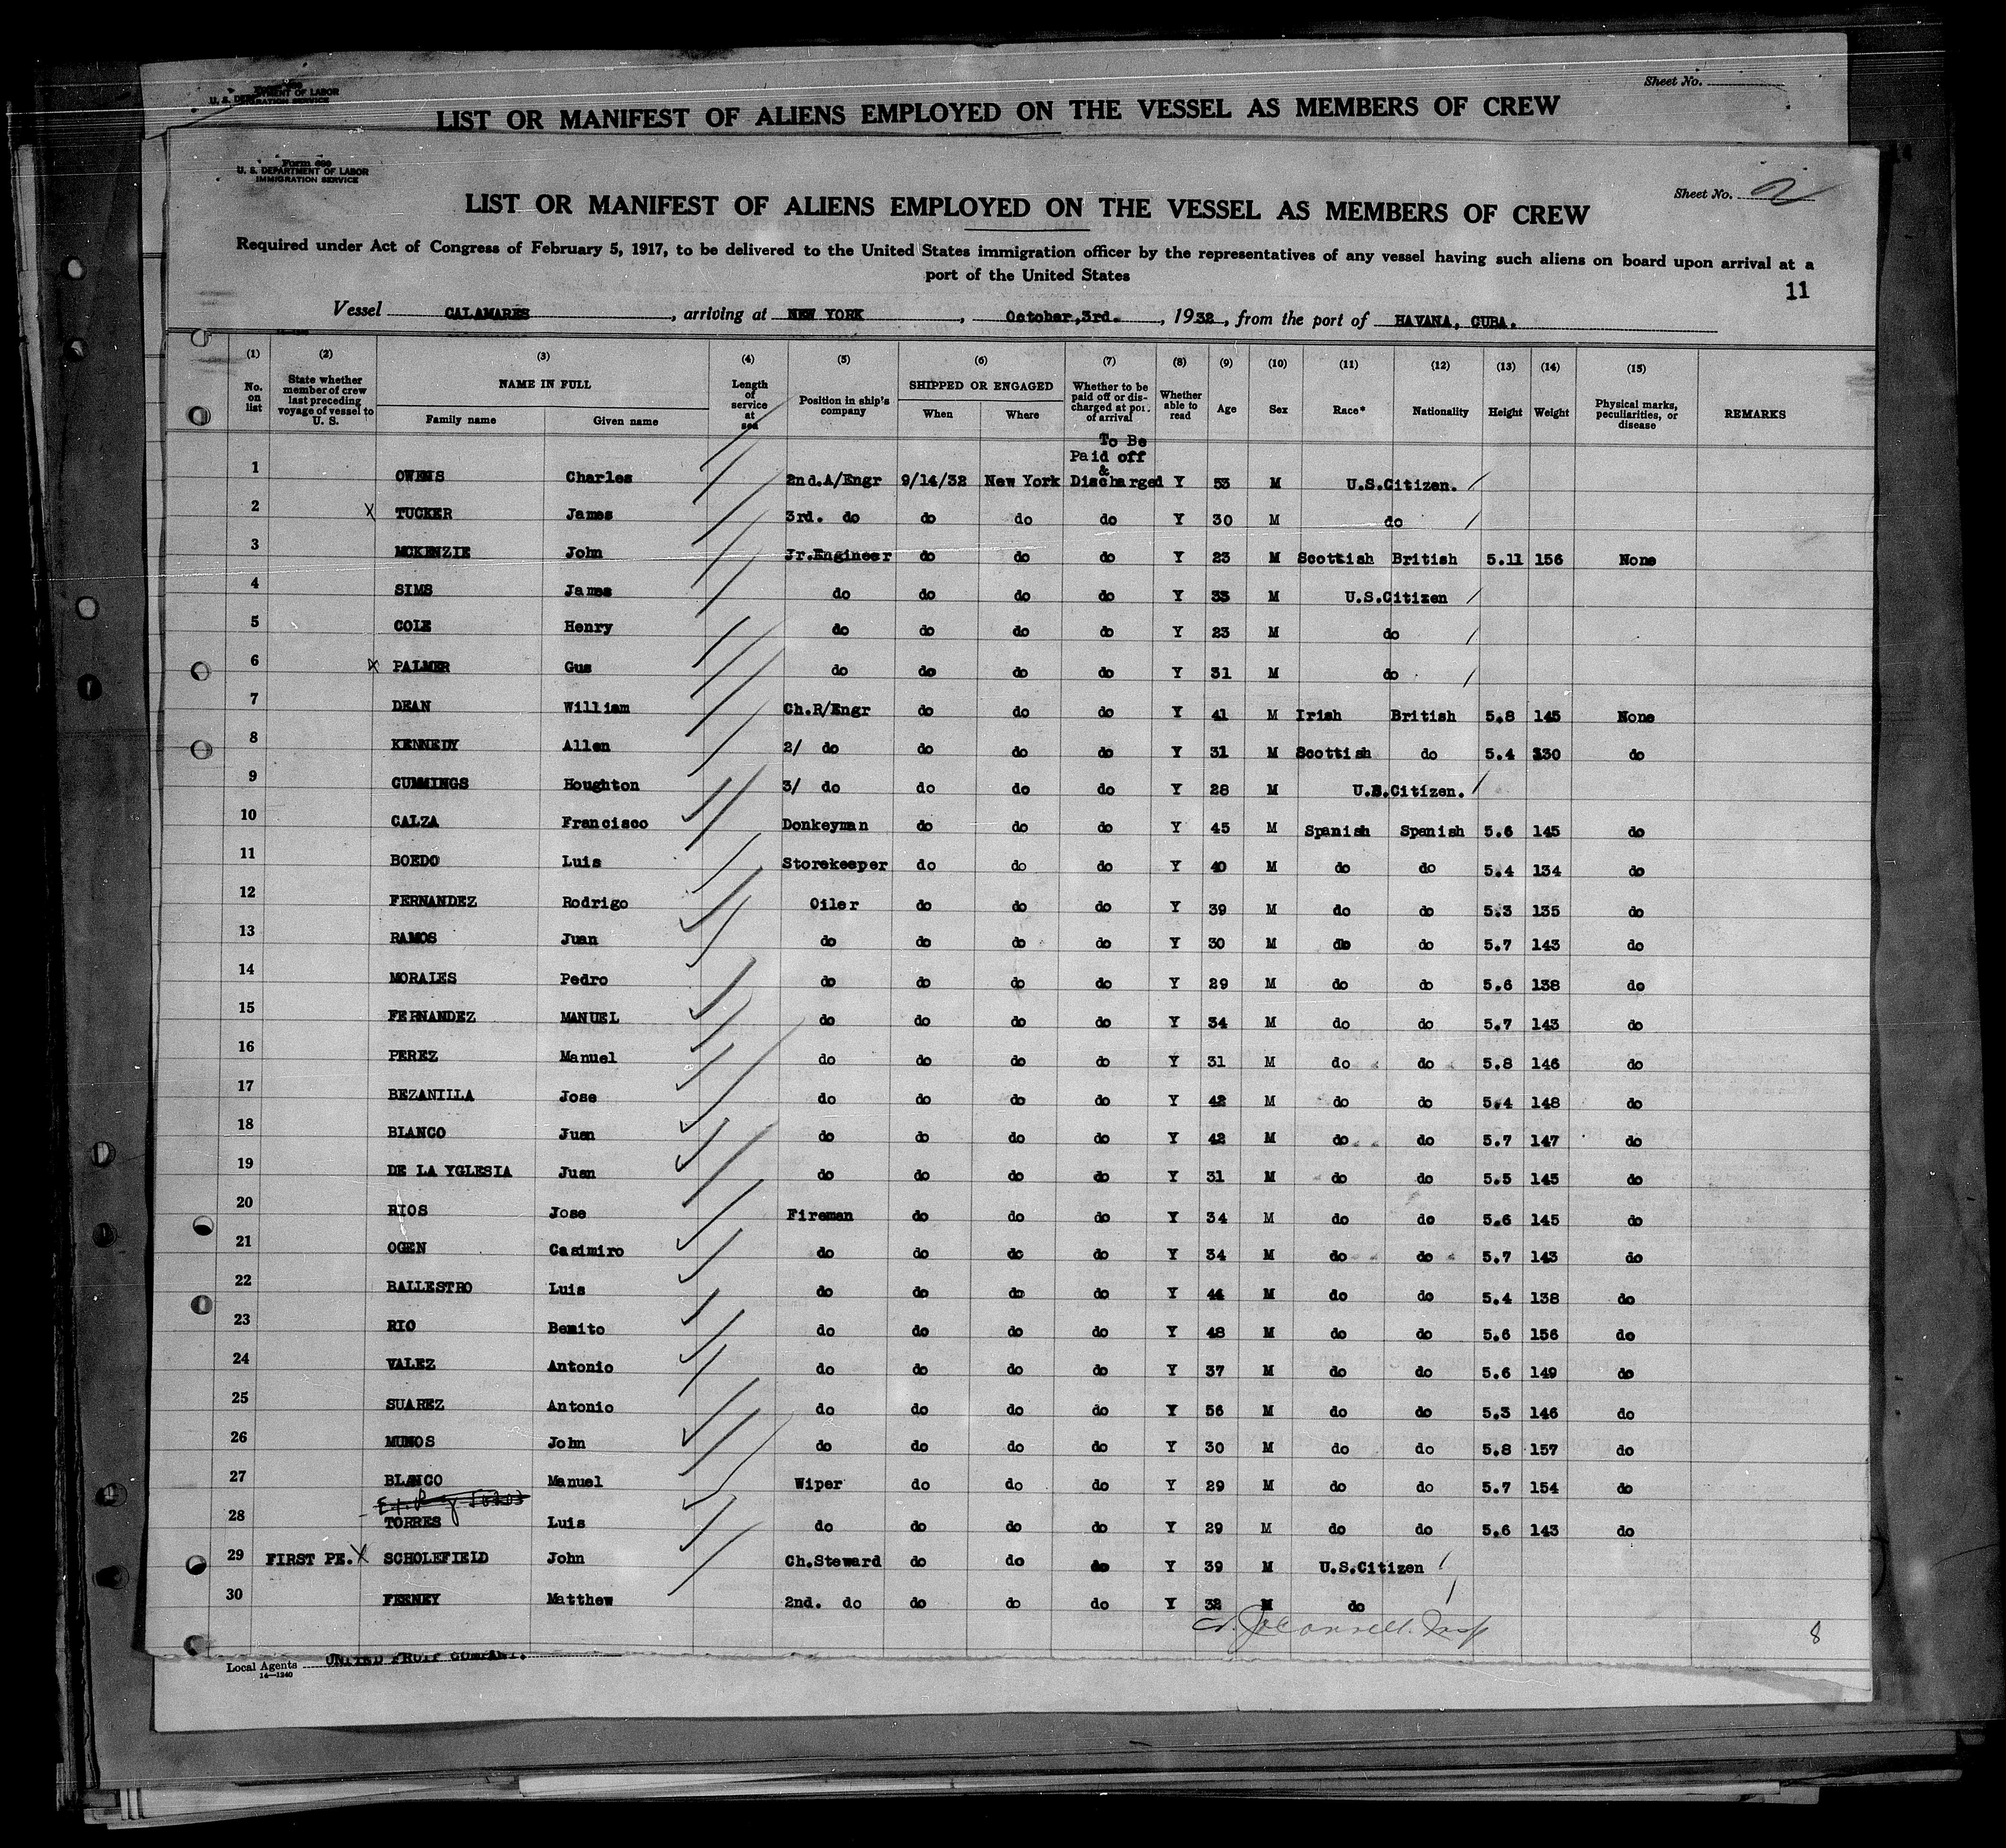 U. S. DEPARTMENT OF LABOR
IMMIGRATION SERVICE
Sheet No.
LIST OR MANIFEST OF ALIENS EMPLOYED ON THE VESSEL AS MEMBERS OF CREW
Form 680
U. S. DEPARTMENT OF LABOR
IMMIGRATION SERVICE
Sheet No. 2
LIST OR MANIFEST OF ALIENS EMPLOYED ON THE VESSEL AS MEMBERS OF CREW
Required under Act of Congress of February 5, 1917, to be delivered to the United States immigration officer by the representatives of any vessel having such aliens on board upon arrival at a
port of the United States
11
Vessel CALAMARES, arriving at NEW YORK, October,3rd., 1932, from the port of HAVANA, CUBA.
(1) (2) (3) (4) (5) (6) (7) (8) (9) (10) (11) (12) (13) (14) (15)
No. on list State whether member of crew last preceding voyage of vessel to U. S. NAME IN FULL Length of service at sea Position in ship's company SHIPPED OR ENGAGED Whether to be paid off or discharged at port of arrival Whether able to read Age Sex Race* Nationality Height Weight Physical marks, peculiarities, or disease REMARKS
Family name Given name When Where
To Be
Paid off
&
1 OWENS Charles 2nd.A/Engr 9/14/32 New York Discharged Y 53 M U.S.Citizen. /
2 X TUCKER James 3rd. do do do do Y 30 M do /
3 MCKENZIE John Jr.Engineer do do do Y 23 M Scottish British 5.11 156 None
4 SIMS James do do do do Y 33 M U.S.Citizen /
5 COLE Henry do do do do Y 23 M do /
6 X PALMER Gus do do do do Y 31 M do /
7 DEAN William Ch.R/Engr do do do Y 41 M Irish British 5.8 145 None
8 KENNEDY Allen 2/ do do do do Y 31 M Scottish do 5.4 130 do
9 CUMMINGS Houghton 3/ do do do do Y 28 M U.S.Citizen. /
10 CALZA Francisco Donkeyman do do do Y 45 M Spanish Spanish 5.6 145 do
11 BOEDO Luis Storekeeper do do do Y 40 M do do 5.4 134 do
12 FERNANDEZ Rodrigo Oiler do do do Y 39 M do do 5.3 135 do
13 RAMOS Juan do do do do Y 30 M do do 5.7 143 do
14 MORALES Pedro do do do do Y 29 M do do 5.6 138 do
15 FERNANDEZ MANUEL do do do do Y 34 M do do 5.7 143 do
16 PEREZ Manuel do do do do Y 31 M do do 5.8 146 do
17 BEZANILLA Jose do do do do Y 42 M do do 5.4 148 do
18 BLANCO Juan do do do do Y 42 M do do 5.7 147 do
19 DE LA YGLESIA Juan do do do do Y 31 M do do 5.5 145 do
20 RIOS Jose Fireman do do do Y 34 M do do 5.6 145 do
21 OGEN Casimiro do do do do Y 34 M do do 5.7 143 do
22 BALLESTRO Luis do do do do Y 44 M do do 5.4 138 do
23 RIO Benito do do do do Y 48 M do do 5.6 156 do
24 VALEZ Antonio do do do do Y 37 M do do 5.6 149 do
25 SUAREZ Antonio do do do do Y 56 M do do 5.3 146 do
26 MUNOS John do do do do Y 30 M do do 5.8 157 do
27 BLANCO Manuel Wiper do do do Y 29 M do do 5.7 154 do
28 TORRES Luis do do do do Y 29 M do do 5.6 143 do
29 FIRST PE. X SCHOLEFIELD John Ch.Steward do do do Y 39 M U.S.Citizen /
30 FEENEY Matthew 2nd. do do do do Y 32 M do /
8
Local Agents UNITED FRUIT COMPANY.
14—1240